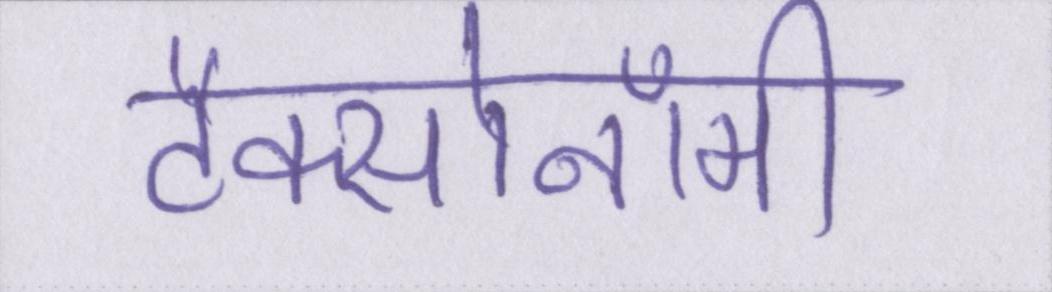 टैक्सोनॉमी